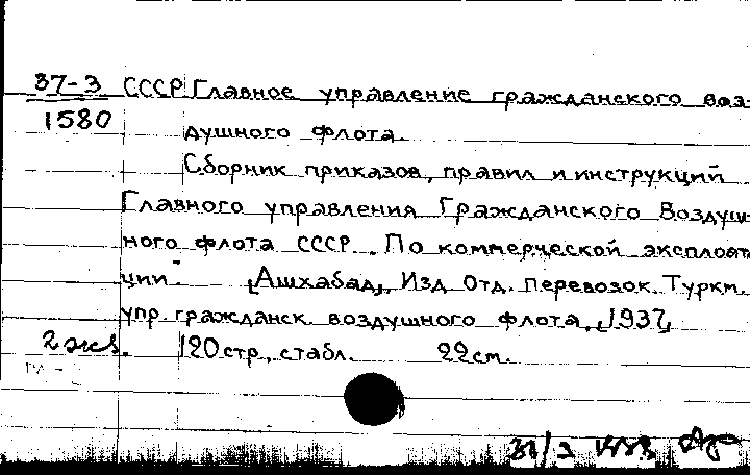 37-3 СССР Главное управление гражданского воз-
1580 душного флота.
Сборник приказов, правил и инструкций
Главного управления Гражданского Воздуш-
ного флота СССР. По коммерческой эксплоат
ции. [Ашхабад], Изд. Отд. перевозок Туркм.
упр. гражданск. воздушного флота, [1937]
2 экз. 120 стр., с табл. 22 см.